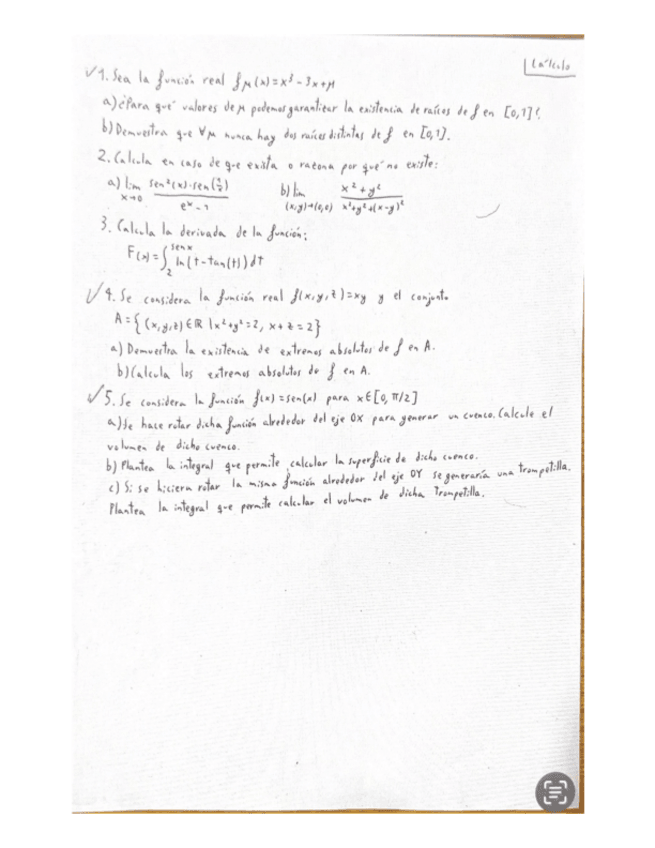 Cálculo
✓ 1. Sea la función real f μ(x)=x³-3x+μ
a) ¿Para qué valores de μ podemos garantizar la existencia de raíces de f en [0,1]?
b) Demuestra que ∀μ nunca hay dos raíces distintas de f en [0,1].
2. Calcula en caso de que exista o razona por qué no existe:
a) lim x→0 sen²(x)·sen(1/x) / eˣ-1 b) lim (x,y)→(0,0) x²+y² / x²+y²+(x-y)²
3. Calcula la derivada de la función:
F(x)=∫₂^senx ln(t-tan(t))dt
✓ 4. Se considera la función real f(x,y,z)=xy y el conjunto
A={(x,y,z)∈ℝ |x²+y²=2, x+z=2}
a) Demuestra la existencia de extremos absolutos de f en A.
b) Calcula los extremos absolutos de f en A.
✓ 5. Se considera la función f(x)=sen(x) para x∈[0,π/2]
a) Se hace rotar dicha función alrededor del eje OX para generar un cuenco. Calcule el
volumen de dicho cuenco.
b) Plantea la integral que permite calcular la superficie de dicho cuenco.
c) Si se hiciera rotar la misma función alrededor del eje OY se generaría una trompetilla.
Plantea la integral que permite calcular el volumen de dicha Trompetilla.